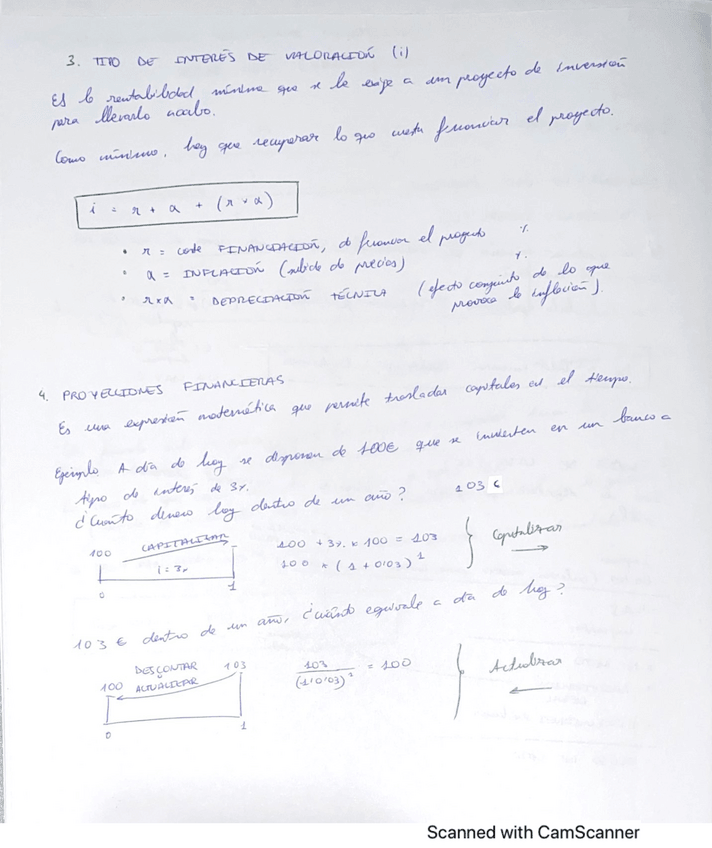 3. TIPO DE INTERÉS DE VALORACIÓN (i)
Es la rentabilidad mínima que se le exige a un proyecto de inversión
para llevarlo acabo.
Como mínimo, hay que recuperar lo que cuesta financiar el proyecto.
i = r + a + (r x a)
• r = coste FINANCIACIÓN, de financiar el proyecto %
• a = INFLACIÓN (subida de precios) %
• r x a = DEPRECIACIÓN TÉCNICA (efecto conjunto de lo que
provoca la inflación).
4. PROYECCIONES FINANCIERAS
Es una expresión matemática que permite trasladar capitales en el tiempo.
Ejemplo A día de hoy se disponen de 100€ que se invierten en un banco a
tipo de interés de 3%.
¿Cuánto dinero hay dentro de un año? 103 €
100 CAPITALIZAR 100 + 3% x 100 = 103 Capitalizar
i = 3% 100 * (1 + 0'03)^1 →
0 1
103 € dentro de un año, ¿cuánto equivale a día de hoy?
DESCONTAR 103 103 / (1'0'03)^1 = 100 Actualizar
100 ACTUALIZAR ←
0 1
Scanned with CamScanner